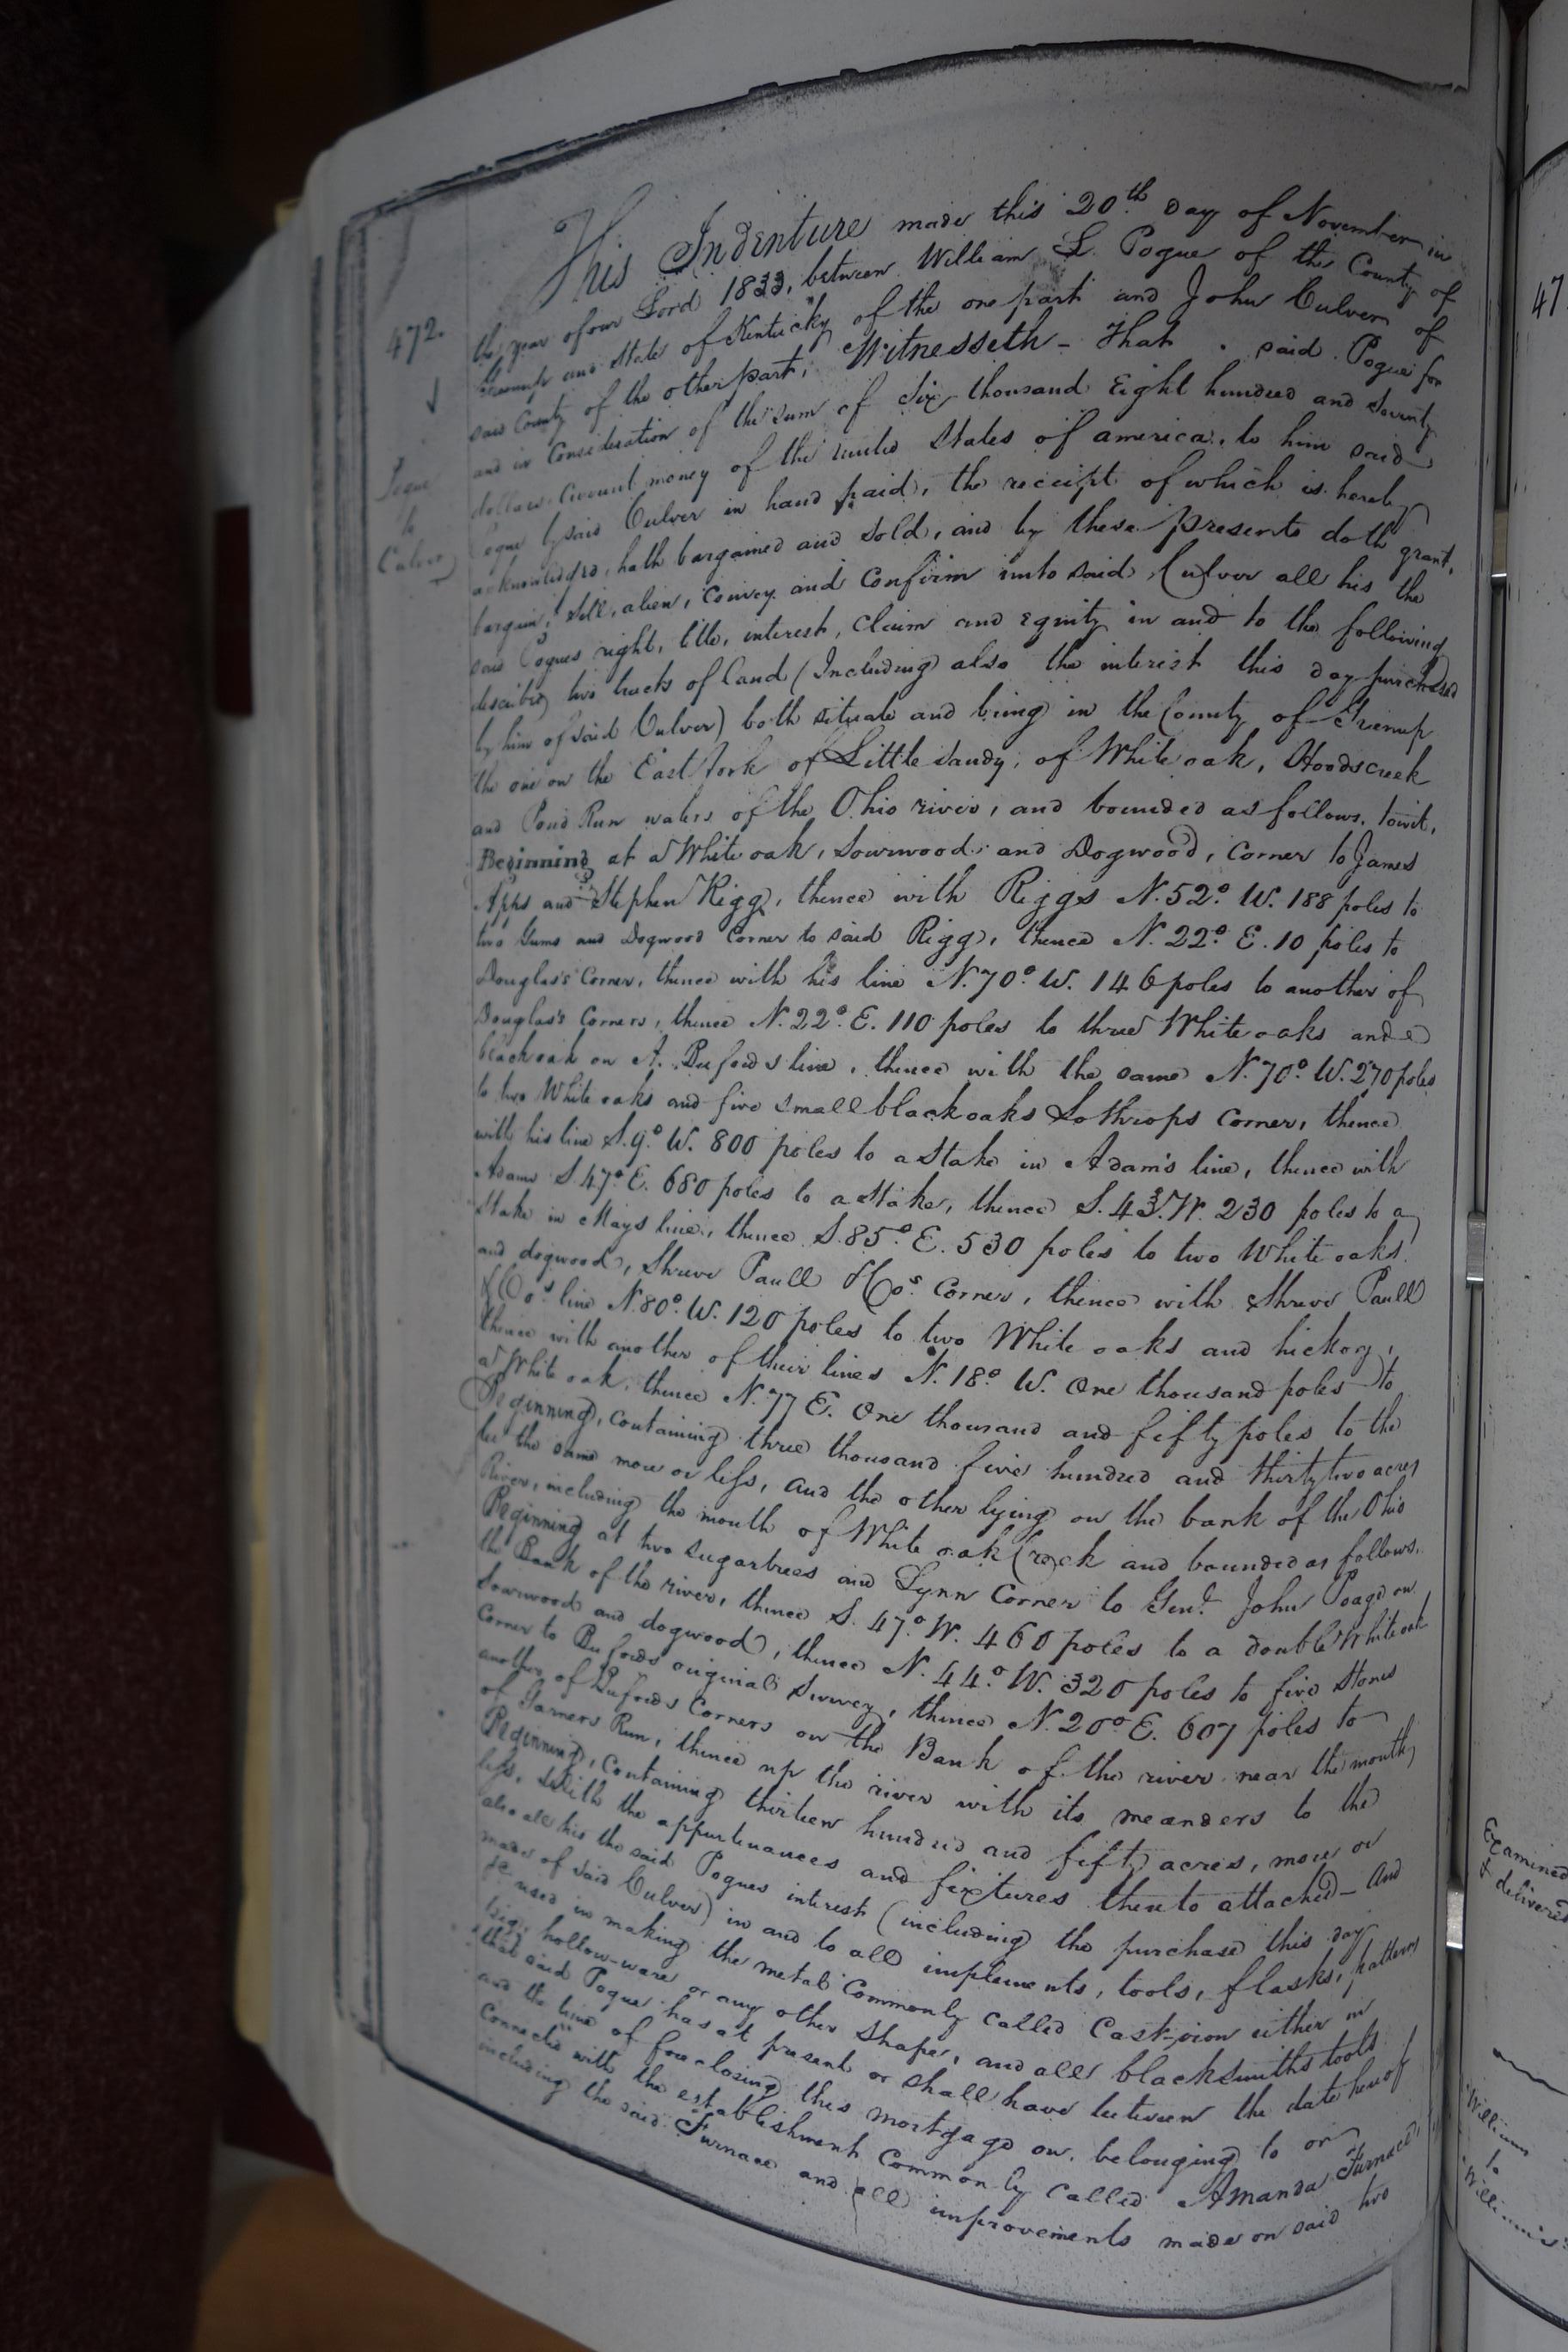 This Indenture made this 20th day of November in
the year of our Lord 1833, between William L. Pogue of the County of
Greenup and State of Kentucky of the one part and John Culver of
said County of the other part, Witnesseth - That . said Pogue for
and in Consideration of the sum of Six thousand Eight hundred and Seventy
dollars Current money of the united States of america, to him said
Pogue by said Culver in hand paid, the receipt of which is hereby
acknowledged, hath bargained and sold, and by these presents doth grant,
bargain, sell, alien, convey and Confirm unto said Culver all his the
said Pogues right, title, interest, claim and equity in and to the following
described two tracts of land (Including also the interest this day purchased
by him of said Culver) both situate and being in the County of Greenup
the one on the East fork of Little sandy, of White oak, Hoods creek
and Pond Run waters of the Ohio river, and bounded as follows, towit,
Beginning at a White oak, Sourwood and Dogwood, corner to James
and Stephen Rigg, thence with Riggs N. 52° W. 188 poles to
two Gums and Dogwood Corner to said Rigg, thence N. 22° E. 10 poles to
Douglass's Corner, thence with his line N. 70° W. 146 poles to another of
Douglass's Corners, thence N. 22° E. 110 poles to three White oaks and a
black oak on A. Bufords line, thence with the same N. 70° W. 270 poles
to two White oaks and five small black oaks Lothrops Corner, thence
with his line S. 9° W. 800 poles to a Stake in Adam's line, thence with
Adams S. 47° E. 680 poles to a Stake, thence S. 43° W. 230 poles to a
Stake in Mays line, thence S. 85° E. 530 poles to two White oaks
and dogwood, Shreve Paull & Cos. Corner, thence with Shreve Paull
& Cos. line N. 80° W. 120 poles to two White oaks and hickory,
thence with another of their lines N. 18° W. One thousand poles to
a White oak, thence N. 77 E. One thousand and fifty poles to the
Beginning, Containing three thousand five hundred and thirty two acres
be the same more or less, and the other lying on the bank of the Ohio
River, including the mouth of White oak Creek and bounded as follows.
Beginning at two sugartrees and Lynn Corner to Genl. John Poage on
the Bank of the river, thence S. 47° W. 460 poles to a double White oak
Sourwood and dogwood, thence N. 44° W. 320 poles to five Stones
Corner to Bufords original Survey, thence N. 20° E. 607 poles to
another of Bufords Corners on the Bank of the river near the mouth
of Run, thence up the river with its meanders to the
Beginning, Containing thirteen hundred and fifty acres, more or
less, With the appurtenances and fixtures thereto attached - And
also all his the said Pogues interest (including the purchase this day
made of said Culver) in and to all implements, tools, flasks, patterns
&c used in making the metal Commonly called Cast-iron either in
pigs, hollow-ware or any other shape, and all blacksmiths tools
that said Pogue has at present or shall have between the date hereof
and the time of foreclosing this mortgage on, belonging to or
Connected with the establishment Commonly Called Amanda Furnace,
including the said Furnace and all improvements made on said two
472.
Pogue
to
Culver
47
Examined
& delivered
William
to